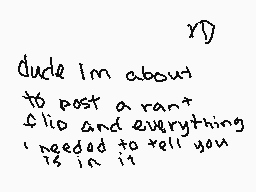 XD
dude Im about
to post a rant
flip and everything
i needed to tell you
is in it